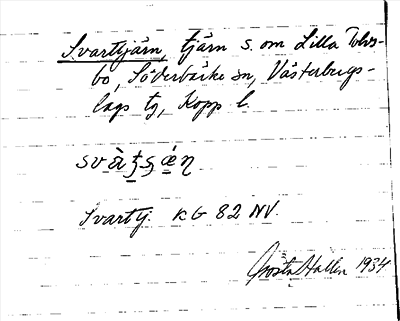 Svarttjärn, tjärn s. om Lilla Tolvs-
bo, Söderbärke sn, Västerbergs-
lags tg, Kopp l.
Svarttj. KG 82 NV.
Gösta Hallén 1934